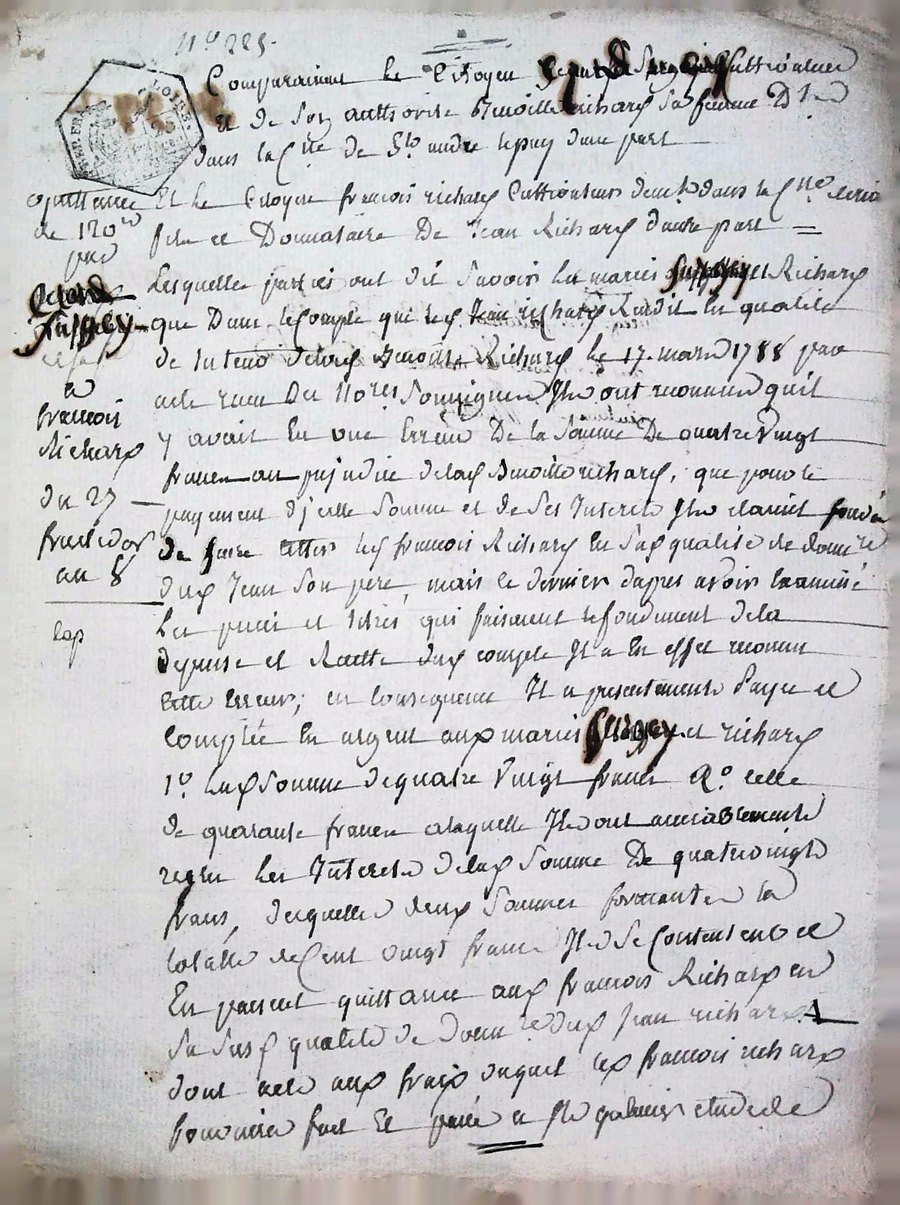 N° 225.
LOIRE.
Comparaissent le Citoyen Cultivateur
et de son authorité Benoitte Richard sa femme Dts
dans la Cne de St andré lepuy dune part
quittance
de 120#
par
françois
Richard
du 27
fructidor
an 8
Et le Citoyen françois richard Cultivateur demt dans la Cne
fils et Donnataire De Jean Richard dautre part =
Lesquelles parties ont dit savoir les mariés et Richard
que Dans le compte que led Jean richard Rendit En qualité
de tuteur delad Benoitte Richard le 17 mars 1788 par
acte recu Des Nores Soussignés Ils ont reconnu quil
y avait En une Erreur De la Somme De quatre Vingt
francs au prejudice delad Benoitte richard, que pour le
payement d'icelle Somme et de Ses Interets Ils etaient fondés
de faire led françois Richard En sad qualité de donnre
dud Jean Son pere, mais ce dernier dapres avoir Examiné
Les pieces et titres qui faisaient le fondement dela
depense et Recette dud compte Il a En effet reconnu
cette Erreur; en Consequence Il a presentement Payé et
Compté En argent aux mariés et richard
1° Lad Somme de quatre Vingt francs 2° celle
de quarante francs alaquelle Ils ont amiablement
reglé Les Interets delad Somme De quatre vingt
francs, desquelles deux Sommes formant la
totalité de Cent vingt francs Ils Se Contentent et
En passent quittance aud françois Richard en
Sa Susd qualité de donnre dud Jean richard
dont acte aux frais duquel led françois richard
fait Et passé a St galmier etude